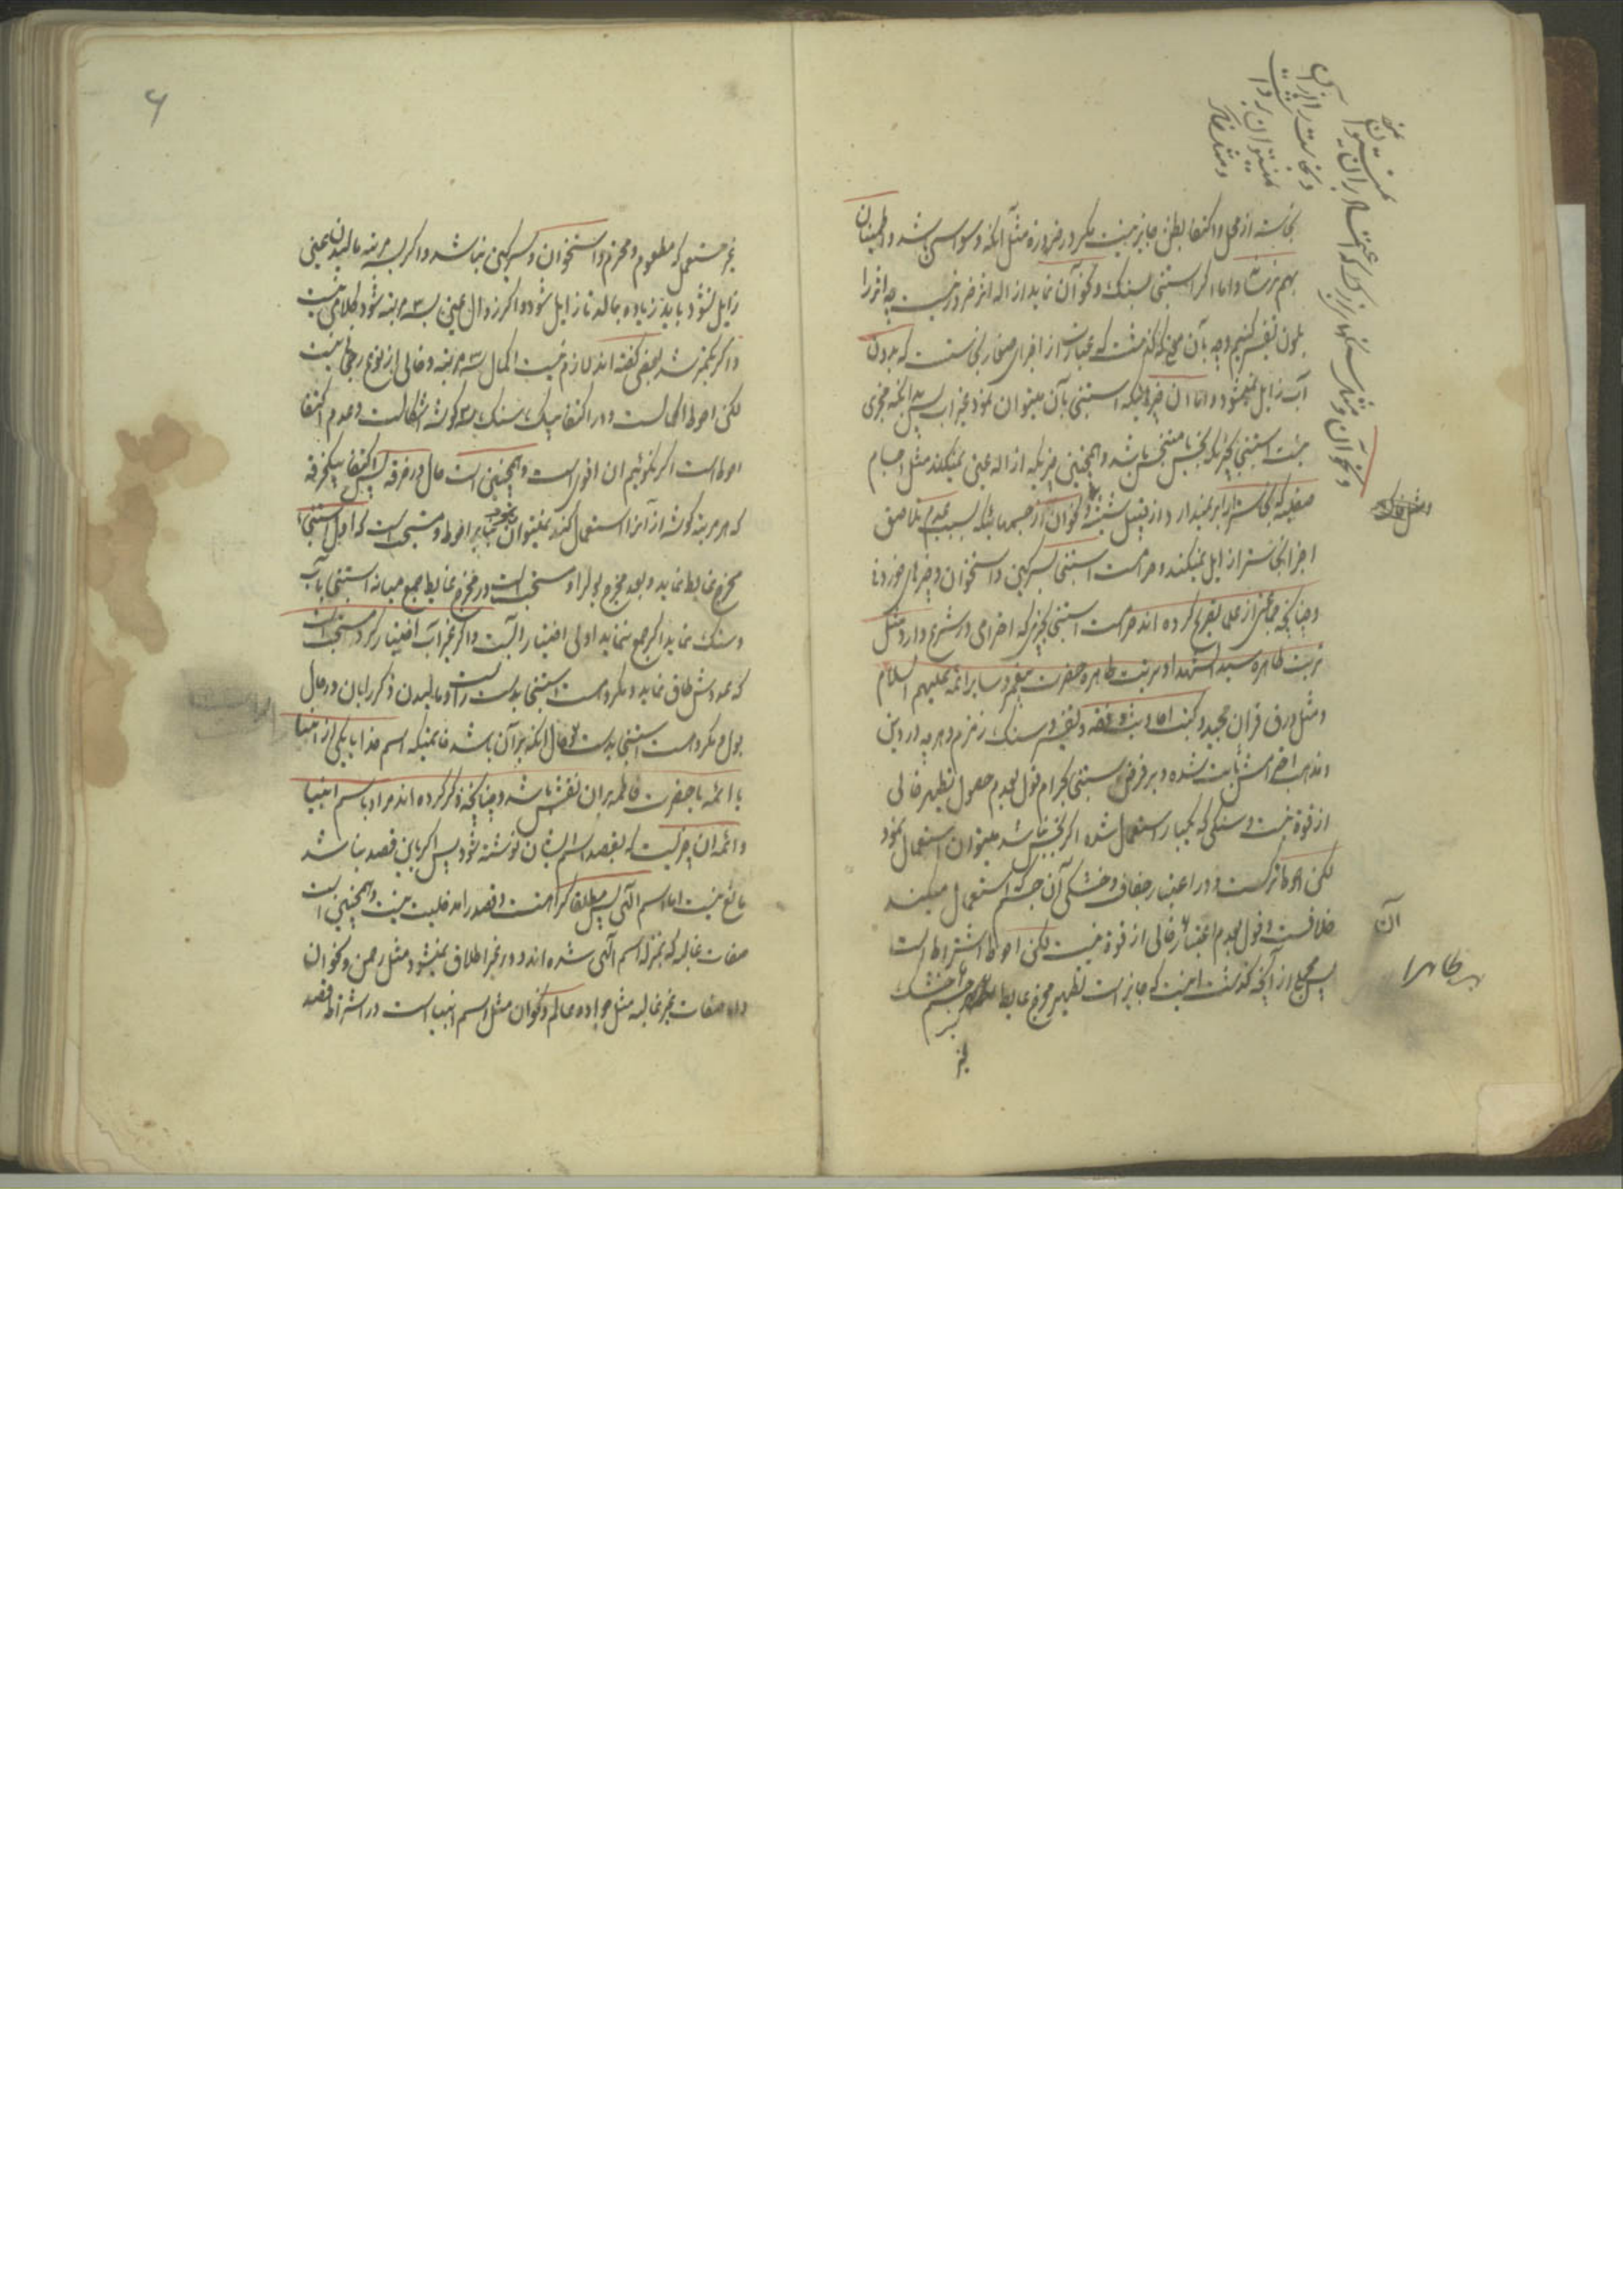 نجاسة از محل و اکتفا بظن جایز نیست مکر در ضرورة مثل آنکه وسواسی باشد و اطمینان
بهم نرساند و اما اکر استنجی بسنك و نحو آن نماید ازاله اثر ضرور نیست چه اثر را
بلون تفسیر کنیم و چه بآن معنی که کذشت که عبارتست از اجزای صغار نجاست که بدون
آب زایل نمیشود و اما آن چیزهائیکه استنجی بآن میتوان نمود بغیر آب پس بدانکه مجزی
نیست استنجی بچیزیکه نجس یا متنجس باشد و همچنین چیزیکه ازاله عین نمیکند مثل اجسام
صیقلیه که نجاست را بر نمیدارد از قبیل شیشه و نحو آن از جسمهائیکه بسبب عدم تلاصق
اجزا نجاست را زایل نمیکنند و حرامست استنجی بسرکین و استخوان و چیزهای خوردنی
و چنانکه جمعی از علما تصریح کرده اند حرامست استنجی بچیزی که احترامی در شرع دارد مثل
تربت طاهره سید الشهدا و تربت طاهره حضرت پیغمبر و سایر ائمه علیهم السلام
و مثل ورق قران مجید و کتب احادیث و فقه و تفسیر و سنك زمزم و هر چه در دین
و مذهب احترامش ثابت شده و بر فرض استنجی بحرام قول بعدم حصول تطهیر خالی
از قوة نیست و سنکی که یکبار استعمال شده اکر نجس نباشد میتوان استعمال نمود
لکن احوط ترکست و در اعتبار جفاف و خشکی آن جسم که استعمال میکنند
خلافست و قول بعدم اعتبار خالی از قوة نیست لکن احوط اشتراط است
پس مجمع از آنچه کذشت اینست که جایز است تطهیر مخرج غایط بهر جسم خشك
آن
طاهرا
غیر
غیر مستعمل که مطعوم و محترم و استخوان و سرکین نباشد و اکر بسه مرتبه مالیدن عین
زایل نشود باید زیاده بمالد تا زایل شود و اکر زوال عین بسه مرتبه شود کلامی نیست
و اکر بکمتر شد بعضی کفته اند لازم نیست اکمال سه مرتبه و خالی از نوع رجحانی نیست
لکن احوط اکمالست و در اکتفا بیك سنك سه کوشه اشکالست و عدم اکتفا
احوط است اکر نکوئیم ان اقوی است و همچنین است حال در خرقه پس اکتفا بیکخرقه
که هر مرتبه کوشه از آنرا استعمال کند نمیتوان نمود بنابر احوط و مستحب است که اول استنجا
مخرج غایط نماید و بعد مخرج بول را و مستحب است در مخرج غایط جمع میانه استنجی بآب
و سنك نماید اکر جمع ننماید اولی اختیار آبست و اکر غیر آب اختیار کرد مستحب است
که عددش طاق نماید و مکروهست استنجی بدست راست و مالیدن ذکر را بان در حال
بول و مکروهست استنجی بدست چپ حال انکه بر آن باشد خاتمیکه اسم خدا یا یکی از انبیا
یا ائمه یا حضرت فاطمه بران نقش باشد و چنانچه ذکر کرده اند مراد باسم انبیا
و ائمه ان چیزیست که بقصد اسم ایشان نوشته شود پس اکر باین قصد نباشد
مانع نیست اما اسم الهی پس مطلقا کراهتست و قصد را مدخلیت نیست و همچنین است
صفات غالبه که بمنزله اسم الهی شده اند و در غیر اطلاق نمیشود مثل رحمن و نحو ان
و اما صفات غیر غالبه مثل جواد و عالم و نحو ان مثل اسم انبیا است در اشتراط قصد